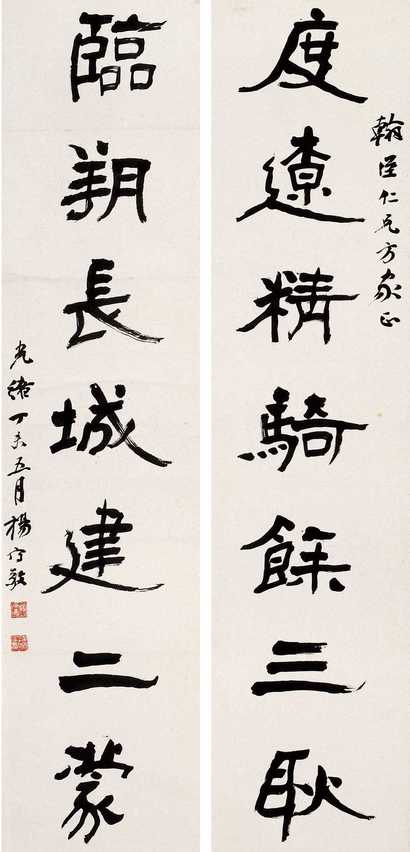 翰臣仁兄方家正
度遼精騎餘三耿
臨朔長城建二蒙
光緒丁未五月楊守敬